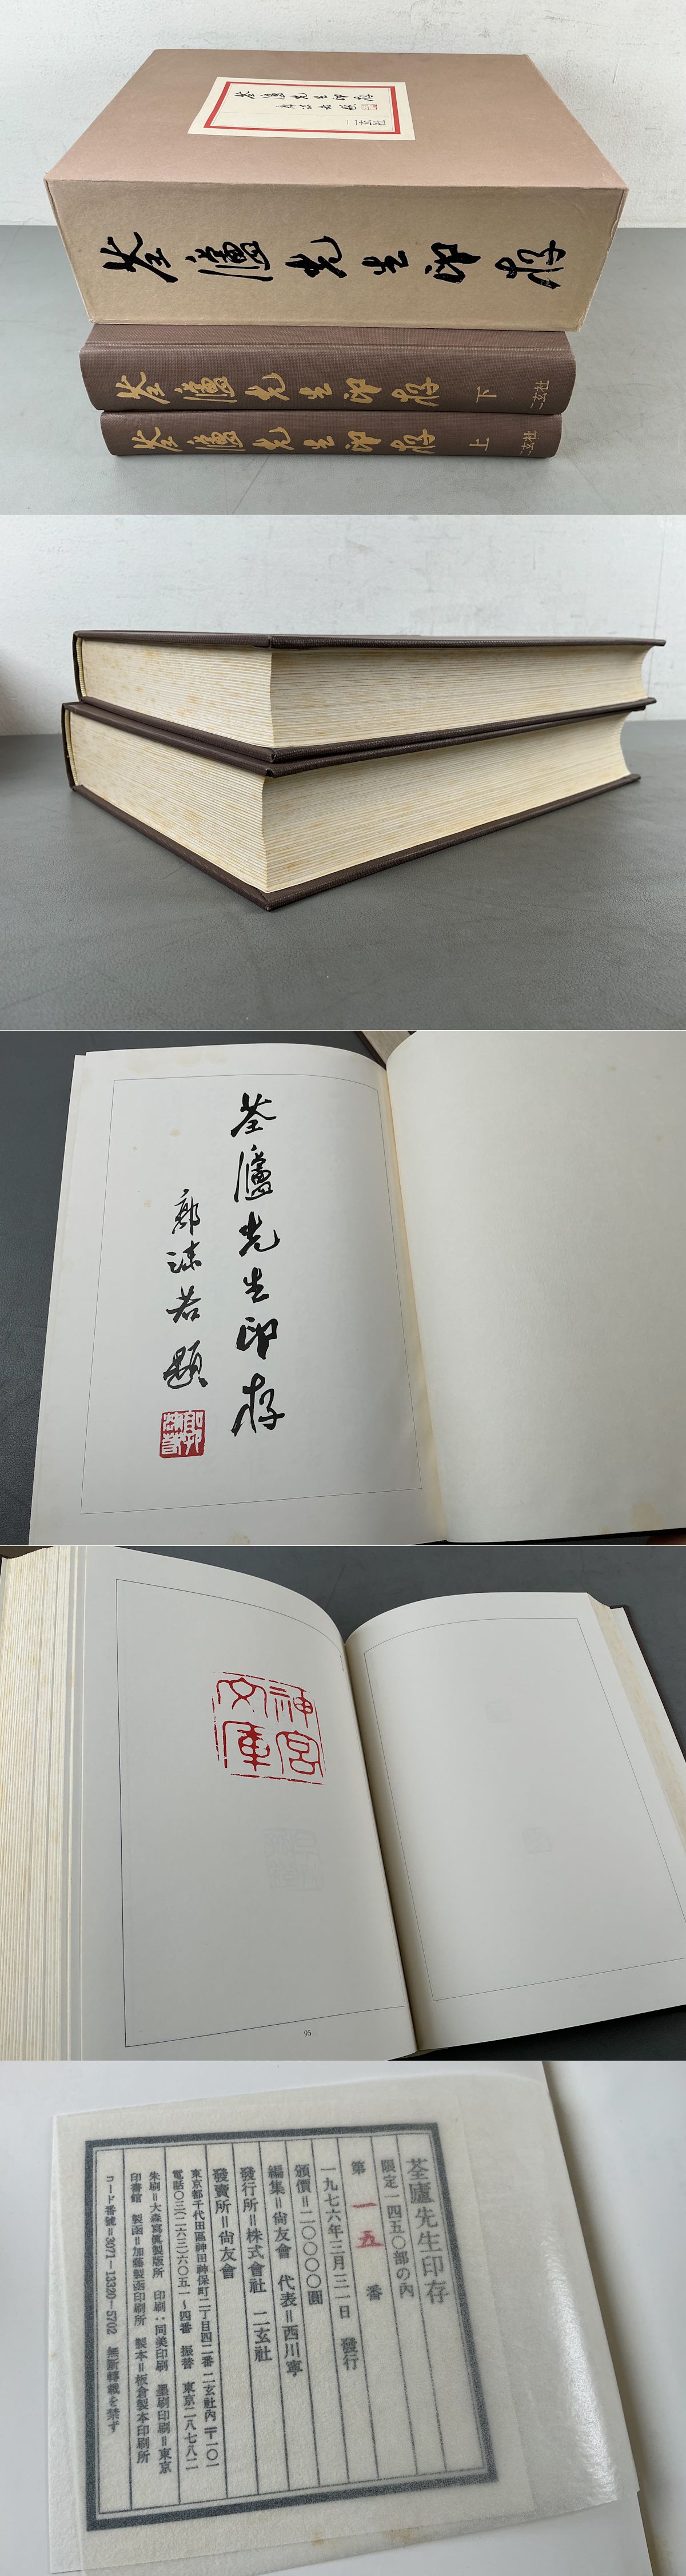 荃廬先生印存
郭沫若題
二玄社
荃廬先生印存
荃廬先生印存 下 二玄社
荃廬先生印存 上 二玄社
荃廬先生印存
郭沫若題
神宮
文庫
95
荃廬先生印存
限定一四五〇部の內
第 一五 番
一九七六年三月三一日 發行
頒價=二〇〇〇〇圓
編集=尙友會 代表=西川寧
發行所=株式會社 二玄社
發賣所=尙友會
東京都千代田區神田神保町二丁目四二番 二玄社內 〒一〇一
電話〇三(二六三)六〇五一~四番 振替 東京二八七八二
朱刷=大森寫眞製版所 印刷:同美印刷 墨刷印刷=東京
印書館 製函=加藤製函印刷所 製本=板倉製本印刷所
コード番號=3071-13330-5702 無斷轉載を禁ず